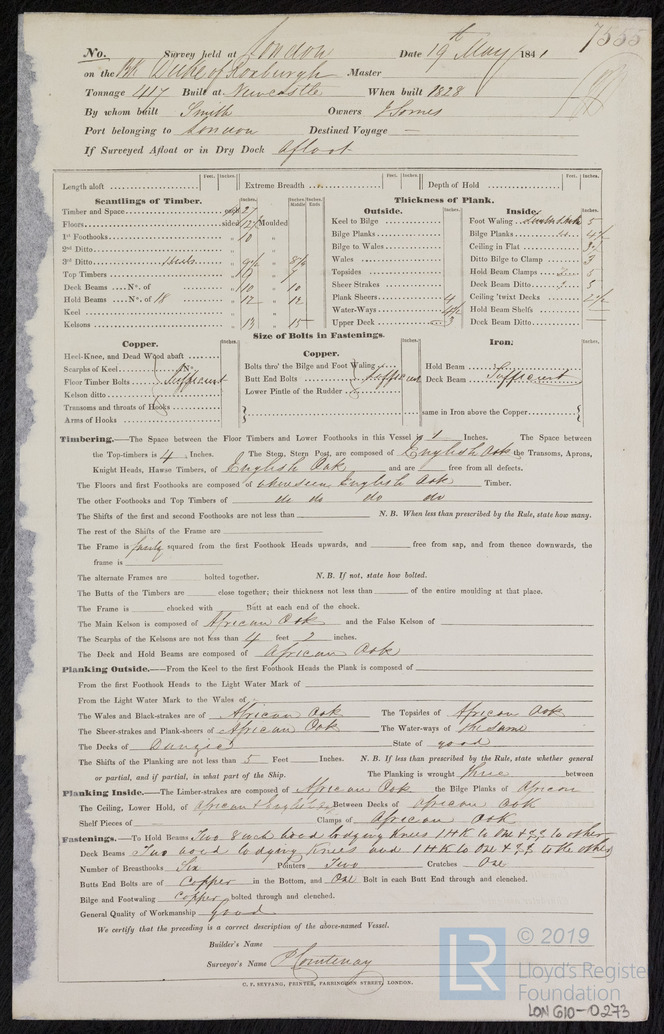 7555
No. Survey held at London Date 19th May 1841
on the Bk Duke of Roxburgh Master
Tonnage 417 Built at Newcastle When built 1828
By whom built Smith Owners J Somes
Port belonging to London Destined Voyage —
If Surveyed Afloat or in Dry Dock Afloat
Length aloft Feet. Inches. Extreme Breadth Feet. Inches. Depth of Hold Feet. Inches.
Scantlings of Timber. Inches. Inches Middle Inches Ends Thickness of Plank.
Outside. Inches. Inside. Inches.
Timber and Space 27 Keel to Bilge Foot Waling 5
Floors sided 12½ Moulded Bilge Planks Bilge Planks 4½
1st Foothooks 10 " Bilge to Wales Ceiling in Flat 3
2nd Ditto " Wales Ditto Bilge to Clamp 3
3rd Ditto 9½ " 8½ Topsides Hold Beam Clamps 5
Top Timbers " 9 " 8 Sheer Strakes Deck Beam Ditto 5
Deck Beams No. of " 10 " 10 Plank Sheers 4 Ceiling 'twixt Decks 2½
Hold Beams No. of 18 " 12 " 12 Water-Ways 4½ Hold Beam Shelfs —
Keel " Upper Deck 3 Deck Beam Ditto —
Kelsons " 13 " 15
Size of Bolts in Fastenings.
Copper. Inches. Copper. Inches. Iron. Inches.
Heel-Knee, and Dead Wood abaft
Scarphs of Keel No. Bolts thro' the Bilge and Foot Waling Hold Beam
Floor Timber Bolts Sufficient Butt End Bolts Sufficient Deck Beam Sufficient
Kelson ditto Lower Pintle of the Rudder
Transoms and throats of Hooks same in Iron above the Copper
Arms of Hooks
Timbering.—The Space between the Floor Timbers and Lower Foothooks in this Vessel is 1 Inches. The Space between
the Top-timbers is 4 Inches. The Stem, Stern Post, are composed of English Oak the Transoms, Aprons,
Knight Heads, Hawse Timbers, of English Oak and are free from all defects.
The Floors and first Foothooks are composed of English Oak Timber.
The other Foothooks and Top Timbers of do do do do
The Shifts of the first and second Foothooks are not less than N.B. When less than prescribed by the Rule, state how many.
The rest of the Shifts of the Frame are
The Frame is fairly squared from the first Foothook Heads upwards, and free from sap, and from thence downwards, the
frame is
The alternate Frames are bolted together. N.B. If not, state how bolted.
The Butts of the Timbers are close together; their thickness not less than of the entire moulding at that place.
The Frame is chocked with Butt at each end of the chock.
The Main Kelson is composed of African Oak and the False Kelson of
The Scarphs of the Kelsons are not less than 4 feet 2 inches.
The Deck and Hold Beams are composed of African Oak
Planking Outside.—From the Keel to the first Foothook Heads the Plank is composed of
From the first Foothook Heads to the Light Water Mark of
From the Light Water Mark to the Wales of
The Wales and Black-strakes are of African Oak The Topsides of African Oak
The Sheer-strakes and Plank-sheers of African Oak The Water-ways of the same
The Decks of State of good
The Shifts of the Planking are not less than 5 Feet Inches. N.B. If less than prescribed by the Rule, state whether general
or partial, and if partial, in what part of the Ship. The Planking is wrought three between
Planking Inside.—The Limber-strakes are composed of African Oak the Bilge Planks of African
The Ceiling, Lower Hold, of African & English Oak Between Decks of African Oak
Shelf Pieces of Clamps of African Oak
Fastenings.—To Hold Beams Two & each wood lodging Knees 1 HK to one & 22 to other
Deck Beams Two wood lodging Knees and 1 HK to one & 22 to the other
Number of Breasthooks Six Pointers Two Crutches One
Butts End Bolts are of Copper in the Bottom, and One Bolt in each Butt End through and clenched.
Bilge and Footwaling Copper bolted through and clenched.
General Quality of Workmanship good
We certify that the preceding is a correct description of the above-named Vessel.
Builder's Name
Surveyor's Name P Courtenay
C. F. SEYFANG, PRINTER, FARRINGDON STREET, LONDON.
LR © 2019
Lloyd's Register
Foundation
LON 610-0273